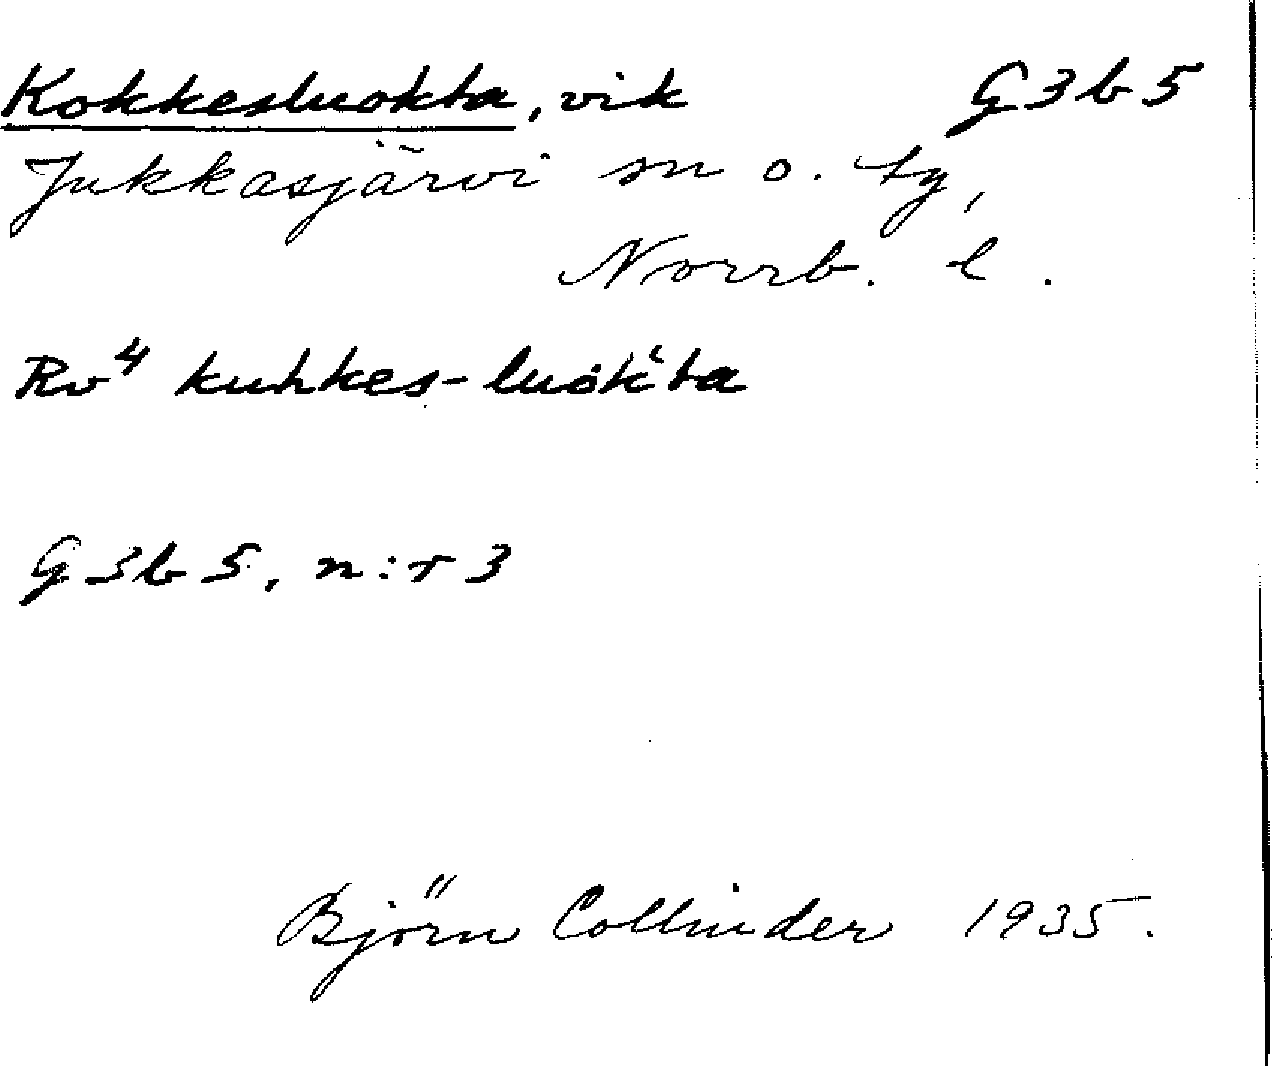 Kokkesluokta, vik G3b5
Jukkasjärvi sn o. tg,
Norrb. l.
Rv⁴ kuhkes-luok'ta
G3b5, n:r 3
Björn Collinder 1935.